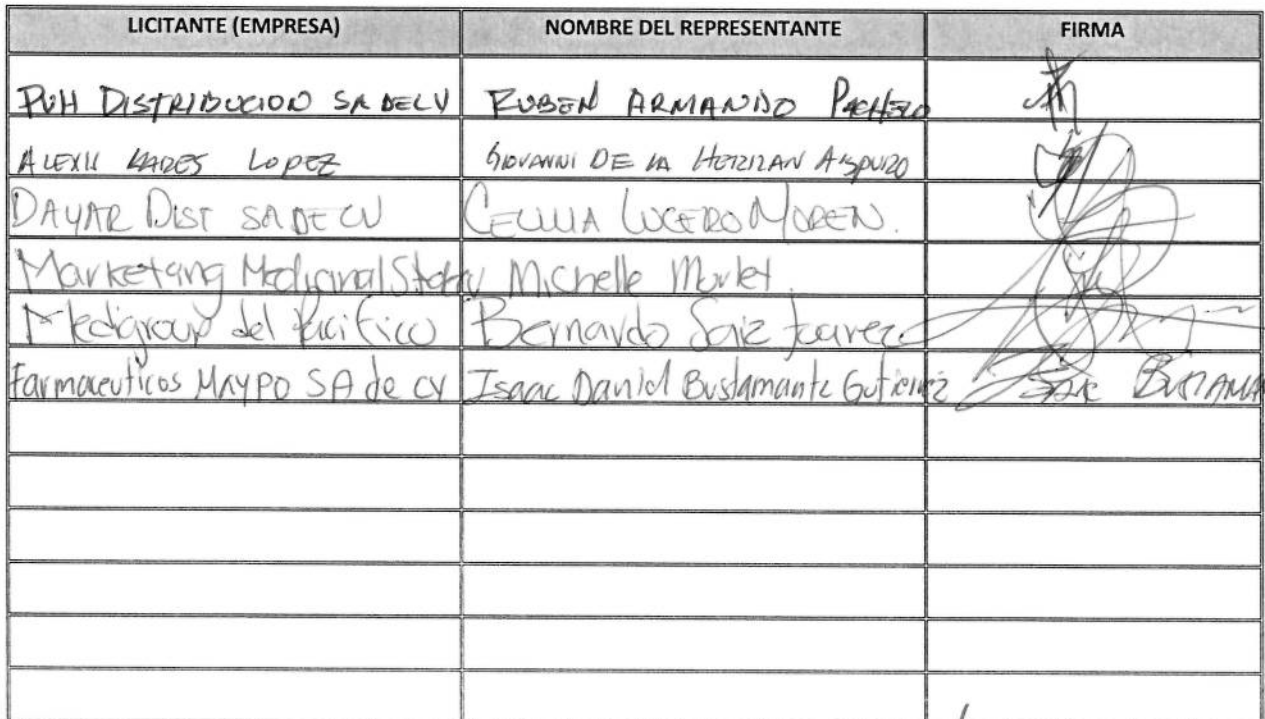 LICITANTE (EMPRESA) NOMBRE DEL REPRESENTANTE FIRMA
PVH DISTRIBUCION SA DE CV RUBEN ARMANDO PACHECO
LOPEZ GIOVANNI DE LA
DAYAR DIST SA DE CV LUCERO MOREN.
Marketing Medicinal Michelle Morlet
Medigroup del Pacifico Bernardo Saiz Juarez
Farmaceuticos MAYPO SA de CV Isaac Daniel Bustamante Gutierrez